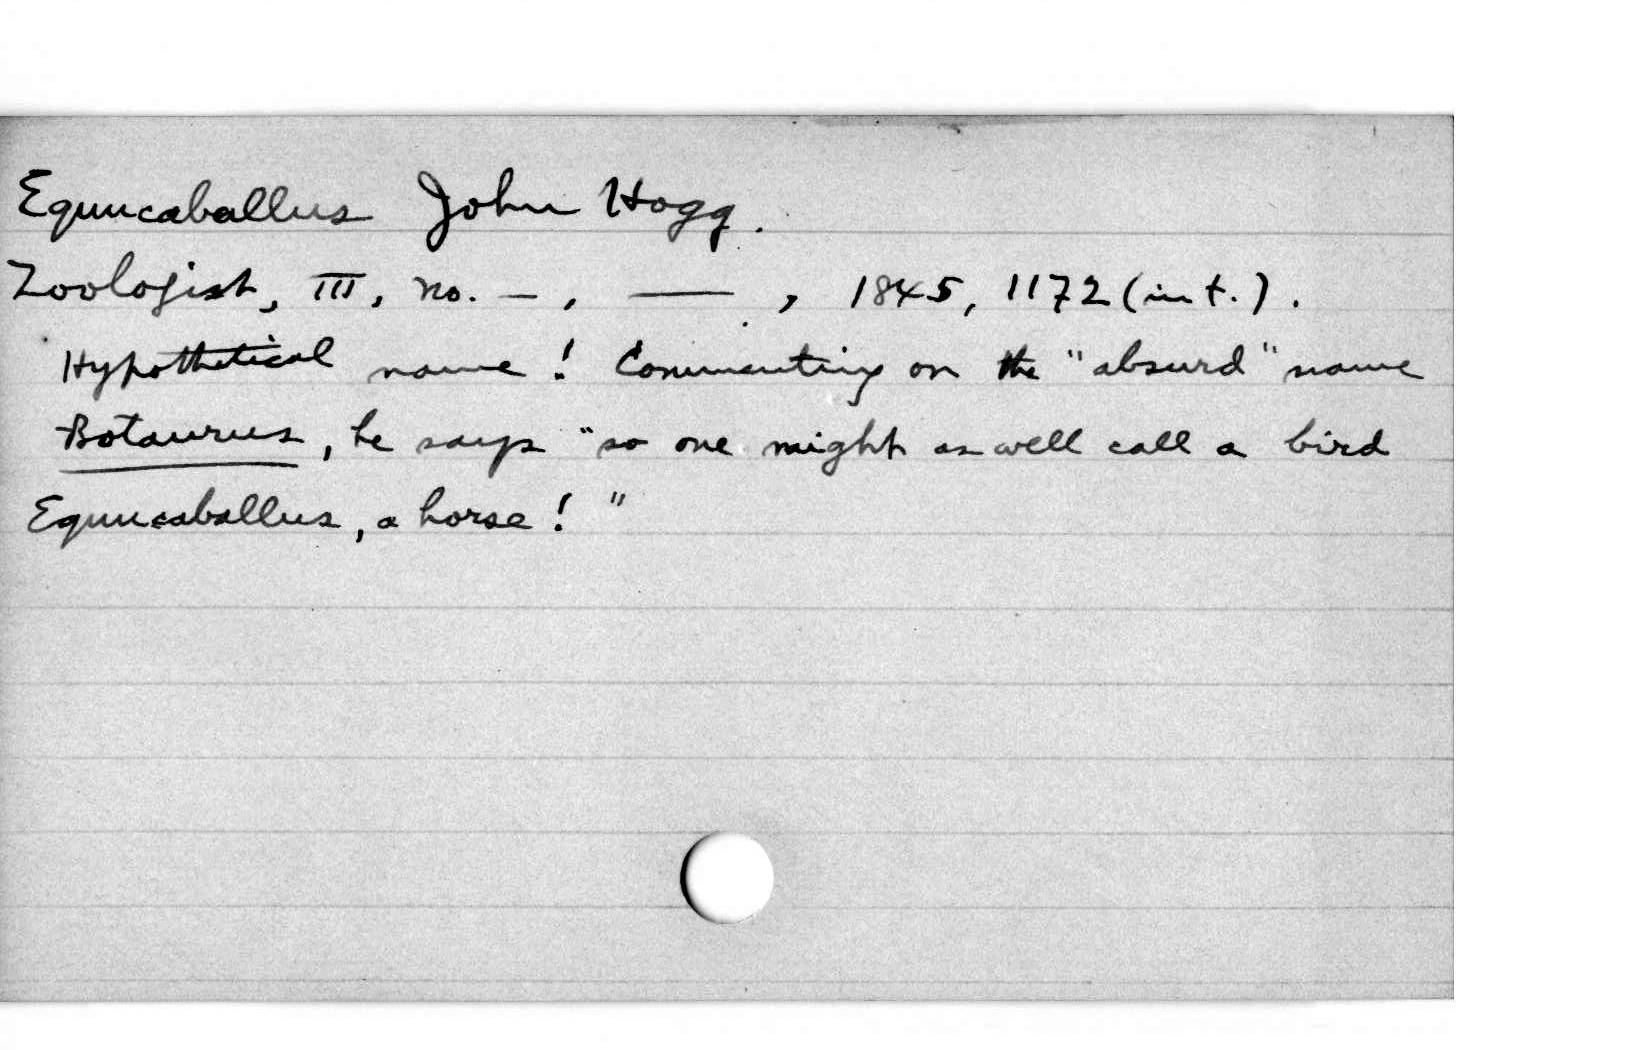 Equucaballus John Hogg.
Zoologist, III, no. –, —, 1845, 1172 (in t.).
Hypothetical name! Commenting on the "absurd" name
Botaurus, he says "so one might as well call a bird
Equucaballus, a horse!"